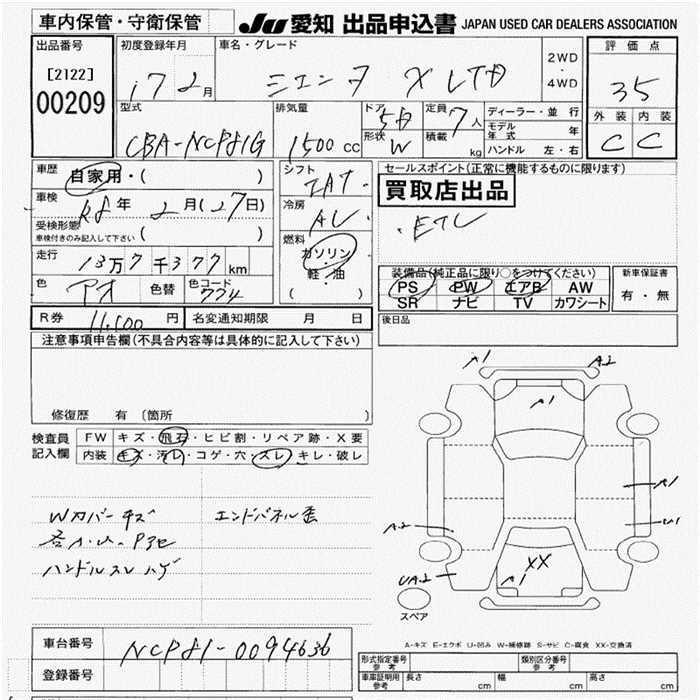 車内保管・守衛保管
JU 愛知 出品申込書 JAPAN USED CAR DEALERS ASSOCIATION
出品番号
[2122]
00209
初度登録年月
17 2月
車名・グレード
シエンタ X LTD
2WD
・
4WD
評価点
35
外装 内装
C C
型式
CBA-NCP81G
排気量
1500 CC
ドア
5D
形状
W
定員
7人
積載
kg
ディーラー・並行
モデル年式 年
ハンドル 左・右
車歴
自家用・( )
車検
R8年 2月(27日)
受検形態
車検付きのみ記入して下さい ( )
走行
13万7千377km
色
アオ
色替
色コード
シフト
IAT
冷房
AC
燃料
ガソリン
・
軽・油
( )
セールスポイント(正常に機能するものに限ります)
買取店出品
・ETC
装備品(純正品に限り○をつけてください)
PS PW エアB AW
SR ナビ TV カワシート
新車保証書
有・無
R券 11,500円
名変通知期限 月 日
後日品
注意事項申告欄(不具合内容等は具体的に記入して下さい)
修復歴 有 〔箇所
検査員記入欄
FW キズ・飛石・ヒビ割・リペア跡・X要
内装 キズ・汚レ・コゲ・穴・スレ・キレ・破レ
Wカバーキズ
エンドパネル歪
ハンドルスレハゲ
A1 A2
A1
A1
U1
A2
UA2
XX
A1
スペア
A-キズ E-エクボ U-凹み W-補修跡 S-サビ C-腐食 XX-交換済
車台番号
NCP81-0094636
登録番号
形式指定番号
参考
類別区分番号
参考
車庫証明用
参考
長さ cm 幅 cm 高さ cm